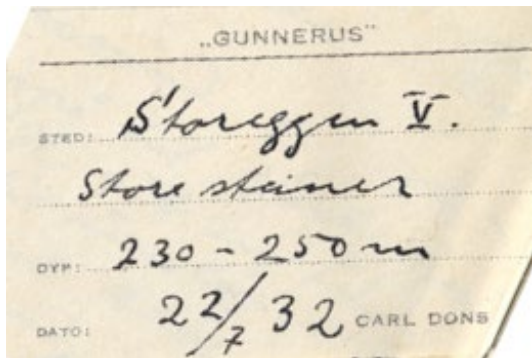 „GUNNERUS"
STED: Storeggen V.
Store steiner
DYP: 230 - 250 m
DATO: 22/7 32 CARL DONS